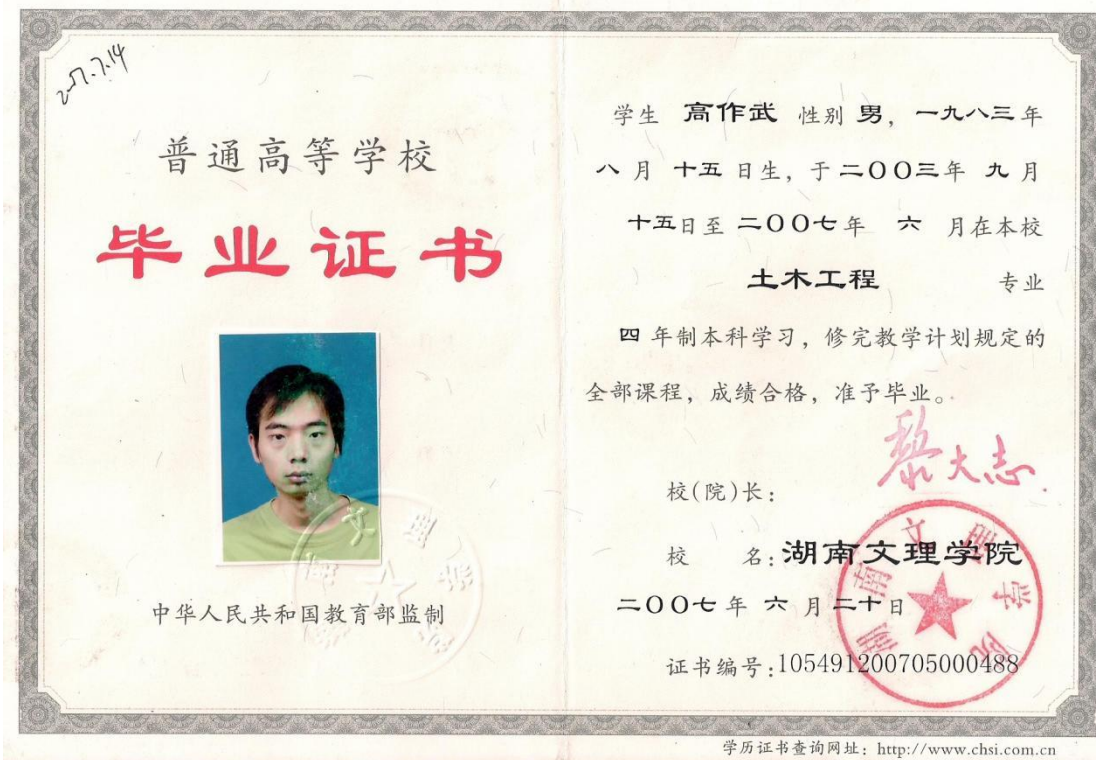 普通高等学校
毕业证书
中华人民共和国教育部监制
学生 高作武 性别 男，一九八三年
八月 十五 日生，于二〇〇三年 九月
十五日至 二〇〇七年 六 月在本校
土木工程 专业
四 年制本科学习，修完教学计划规定的
全部课程，成绩合格，准予毕业。
校(院)长：
黎大志
校 名：湖南文理学院
湖南文理学院
二〇〇七年 六 月二十日
证书编号：105491200705000488
学历证书查询网址：http://www.chsi.com.cn